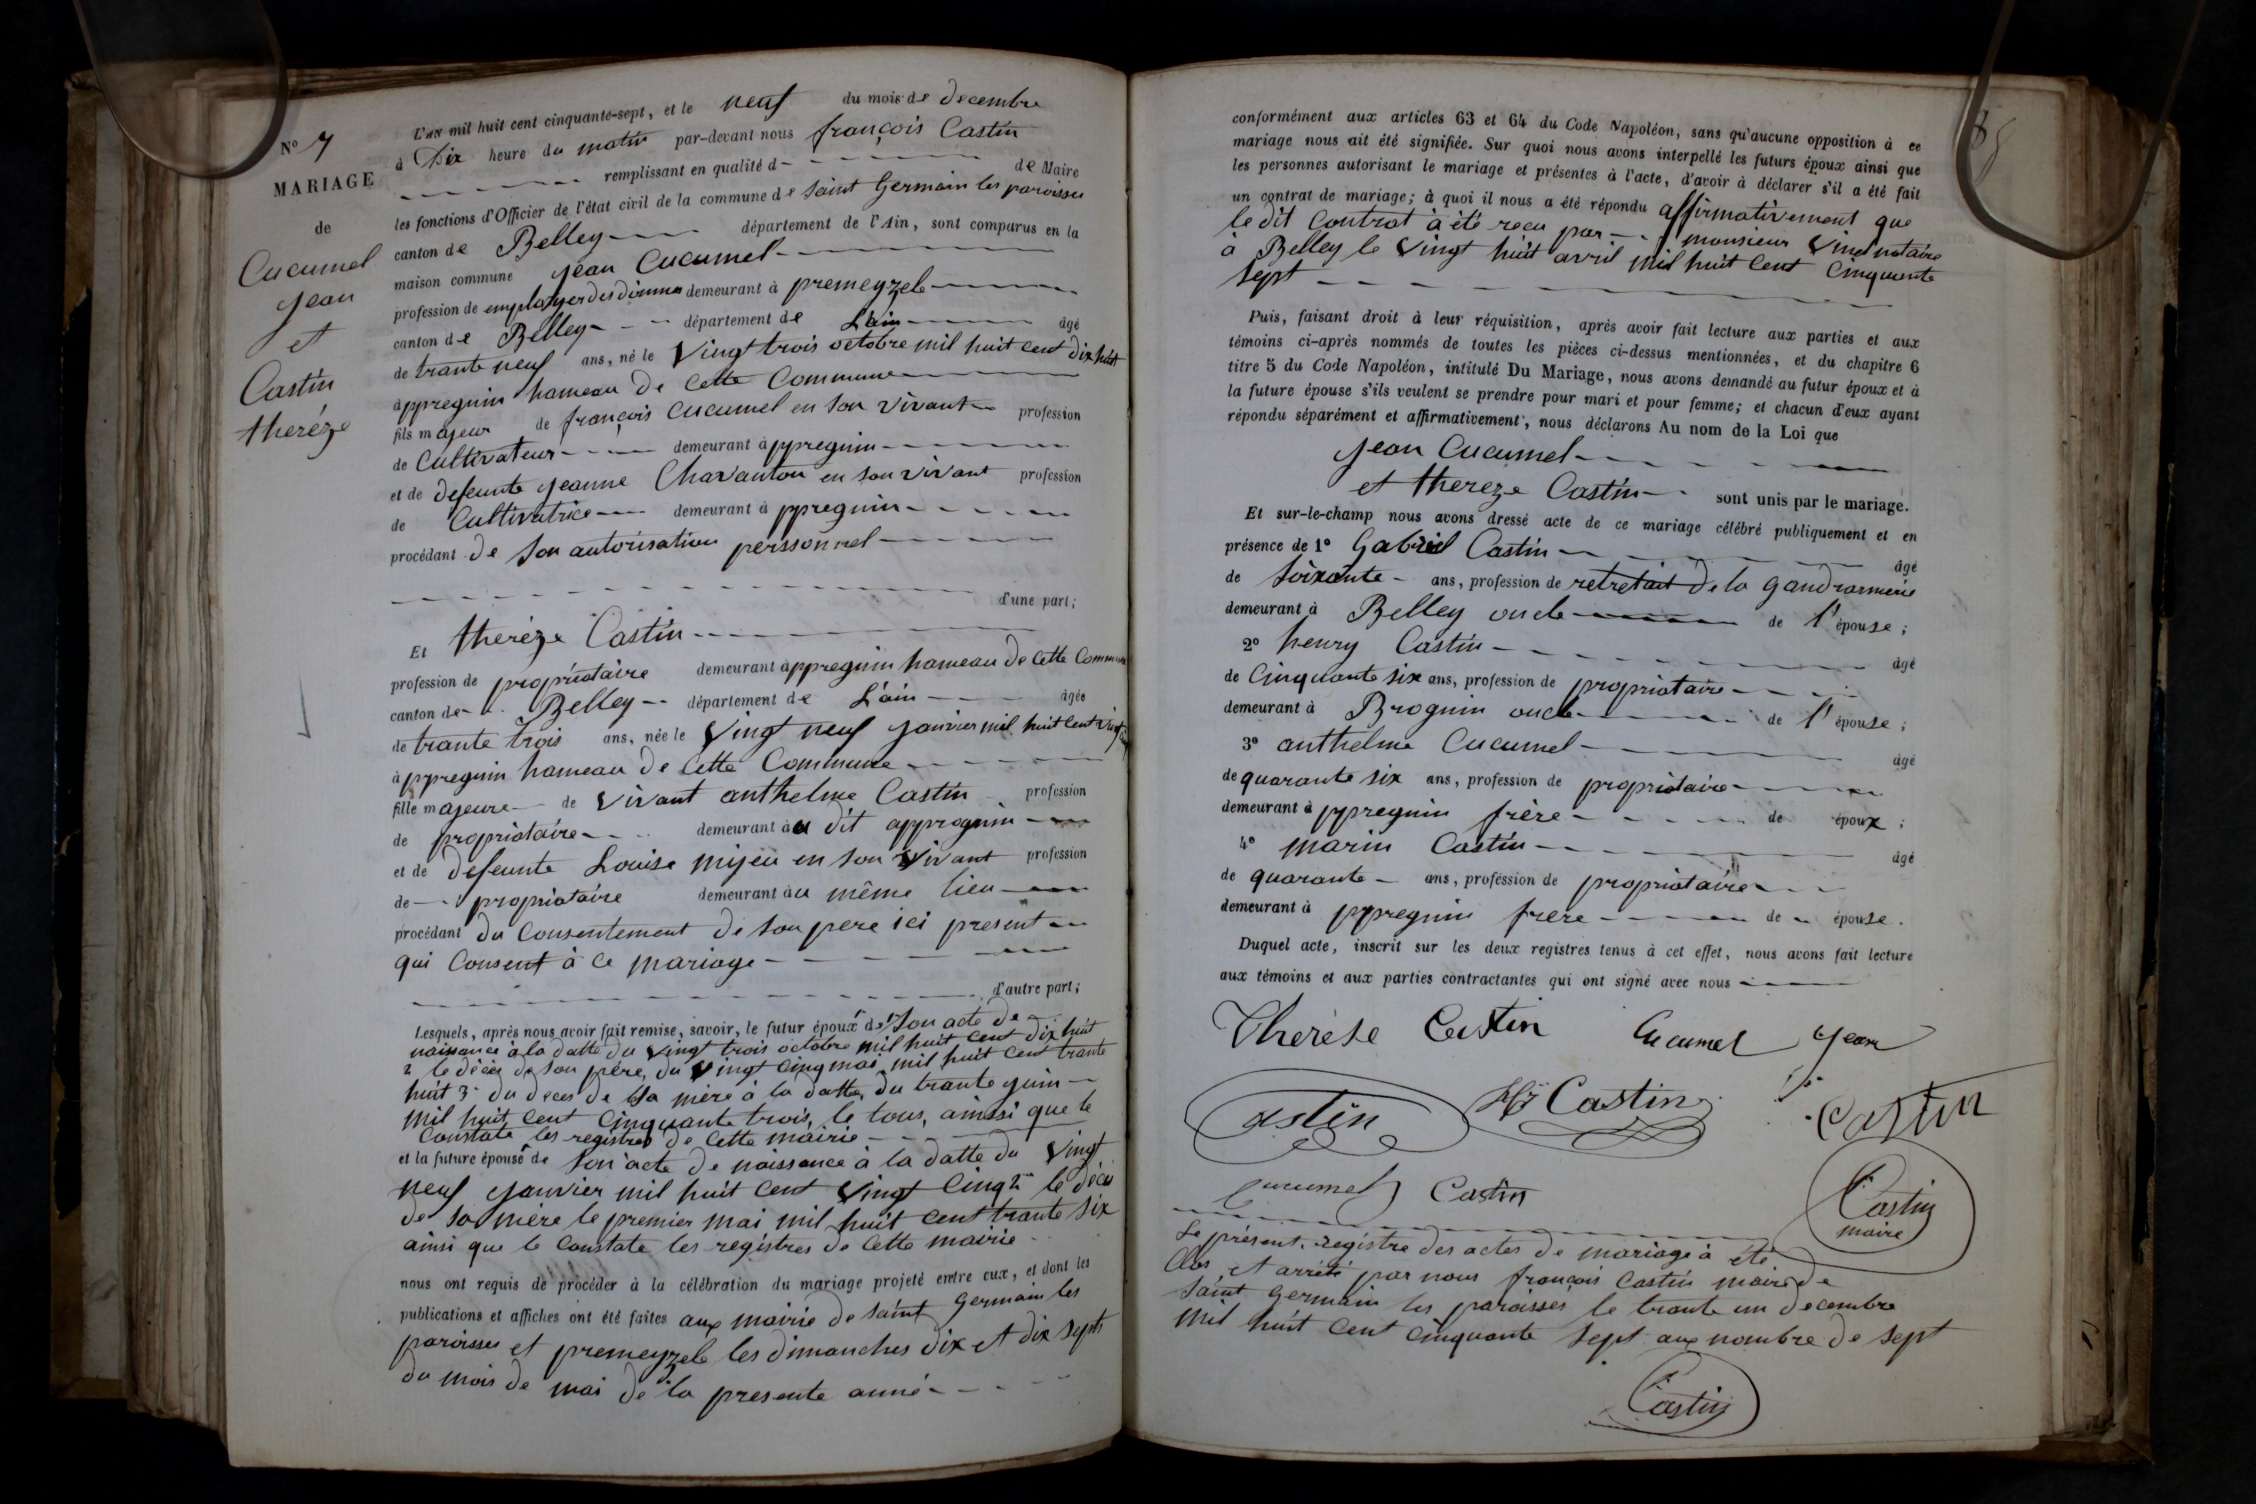 N° 7
MARIAGE
de
Cucumel
jean
et
Castin
theréze
L'an mil huit cent cinquante-sept, et le neuf du mois de decembre
à Dix heure du matin par-devant nous françois Castin
remplissant en qualité d de Maire
les fonctions d'Officier de l'état civil de la commune de saint Germain les paroisses
canton de Belley département de l'Ain, sont comparus en la
maison commune jean Cucumel
profession de employer des demeurant à premeyzele
canton de Belley département de L'ain âgé
de trante neuf ans, né le vingt trois octobre mil huit cent dix huit
à ppregnin hameau de cette Commune
fils majeur de françois Cucumel en son vivant profession
de Cultivateur demeurant à ppregnin
et de defeunte jeanne Chavanton en son vivant profession
de Cultivatrice demeurant à ppregnin
procédant de son autorisation perssonnel
d'une part;
Et theréze Castin
profession de propriataire demeurant à ppregnin hameau de cette Commune
canton de Belley département de L'ain âgée
de trante trois ans, née le vingt neuf janvier mil huit cent vingt
à ppregnin hameau de Cette Commune
fille majeure de vivant anthelme Castin profession
de propriataire demeurant au dit appregnin
et de defeunte Louise mijeu en son vivant profession
de propriataire demeurant au même lieu
procédant du Consentement de son pere ici present
qui Consent à ce mariage
d'autre part;
Lesquels, après nous avoir fait remise, savoir, le futur époux de 1° son acte de
naissance à la datte du vingt trois octobre mil huit cent dix huit
2 le décès de son père, du vingt cinq mai mil huit cent trante
huit 3° du deces de sa mère à la datte, du trante juin
mil huit cent cinquante trois, le tous, ainssi que le
Constate les registres de cette mairie
et la future épouse de son acte de naissance à la datte du vingt
neuf janvier mil huit cent vingt cinq 2° le décès
de sa mère le premier mai mil huit cent trante six
ainsi que le Constate les registres de Cette mairie
nous ont requis de procéder à la célébration du mariage projeté entre eux, et dont les
publications et affiches ont été faites aux mairie de saint Germain les
paroisses et premeyzele les dimanches dix et dix sept
du mois de mai de la presente anné
85
conformément aux articles 63 et 64 du Code Napoléon, sans qu'aucune opposition à ce
mariage nous ait été signifiée. Sur quoi nous avons interpellé les futurs époux ainsi que
les personnes autorisant le mariage et présentes à l'acte, d'avoir à déclarer s'il a été fait
un contrat de mariage; à quoi il nous a été répondu affirmativement que
le dit Contrat à été recu par monsieur vinet notaire
à Belley le vingt huit avril mil huit cent cinquante
sept
Puis, faisant droit à leur réquisition, après avoir fait lecture aux parties et aux
témoins ci-après nommés de toutes les pièces ci-dessus mentionnées, et du chapitre 6
titre 5 du Code Napoléon, intitulé Du Mariage, nous avons demandé au futur époux et à
la future épouse s'ils veulent se prendre pour mari et pour femme; et chacun d'eux ayant
répondu séparément et affirmativement, nous déclarons Au nom de la Loi que
jean Cucumel
et thereze Castin sont unis par le mariage.
Et sur-le-champ nous avons dressé acte de ce mariage célébré publiquement et en
présence de 1° Gabriel Castin âgé
de soixante ans, profession de retretait de la gandrarmerie
demeurant à Belley oncle de l'épouse;
2° henry Castin âgé
de Cinquante six ans, profession de propriataire
demeurant à Brognin oncle de l'épouse;
3° anthelme Cucumel âgé
de quarante six ans, profession de propriataire
demeurant à ppregnin frère de époux;
4° marin Castin âgé
de quarante ans, profession de propriataire
demeurant à ppregnin frere de épouse.
Duquel acte, inscrit sur les deux registres tenus à cet effet, nous avons fait lecture
aux témoins et aux parties contractantes qui ont signé avec nous
Therèse Castin Cucumel Jean
Castin Hy Castin Castin
Cucumel Castin
Castin
maire
Le présent registre des actes de mariage à été
Clos et arrêté par nous françois Castin maire de
saint germain les paroisses le trante un decembre
mil huit cent cinquante sept aux nombre de sept
Castin